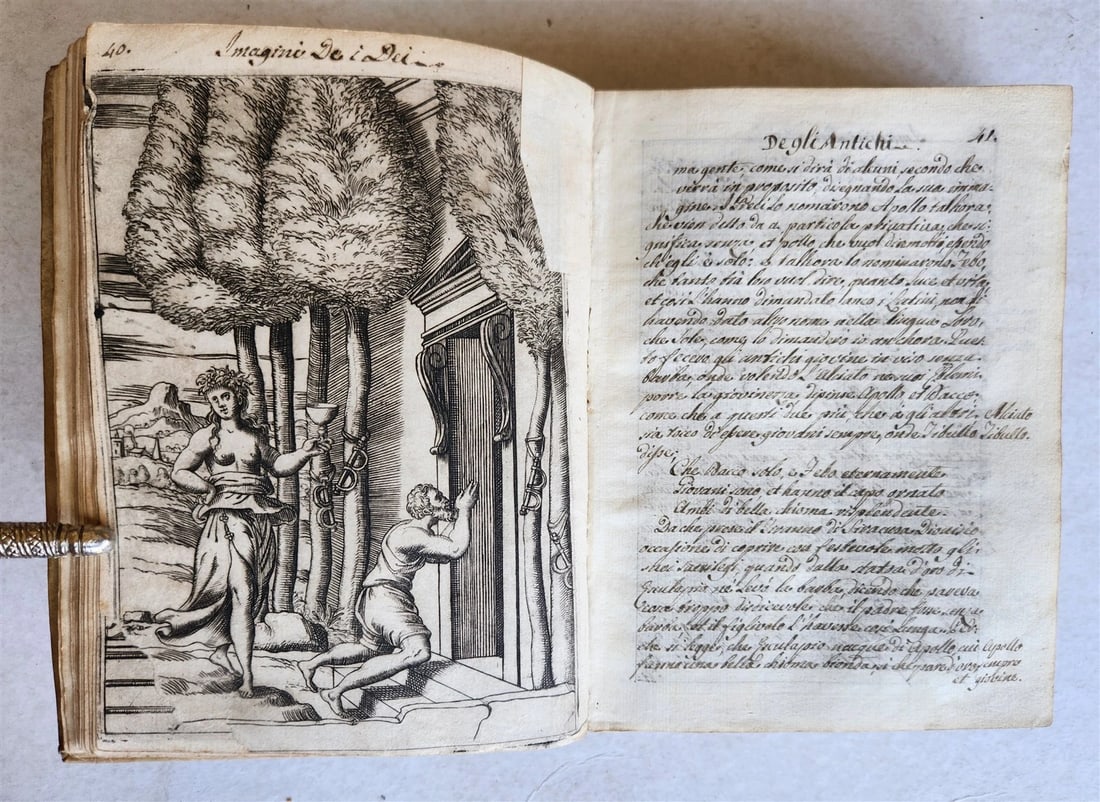 40.
Imagini De i Dei
Degli Antichi
41.
ma gente, come si dirà di alcuni secondo che
verrà in proposito, disegnando la sua imma-
gine. I Greci lo nomarono Apollo talhora,
che vien detto da a, particola privativa, che si-
gnifica senza, et che vuol dire molti
ch'egli è solo: et talhora lo nominarono Febo,
che tanto trà loro vuol dire, quanto luce et vita,
et così l'hanno dimandato anco i Latini, non
havendo dato altro nome nella lingua loro,
che Sole, come lo dimandono
to fecero gli antichi giovine in viso senza
barba, onde volendo l'Alciato ne suoi
porre la giovinezza dipinse Apollo et Bacco,
come che a questi due più, che a gli altri
sia toco di essere giovani sempre, onde Tibullo
disse:
Alciato
Tibullo.
Che Bacco solo, e Febo eternamente
Giovani sono et hanno il capo ornato
Ambi di bella chioma risplendente.
Da che prese il tiranno di Siracusa Dionisio
occasione di coprire con festevole motto gli
suoi sacrilegi, quando dalla statua d'oro di
Esculapio ne levò la barba, dicendo che pareva
cosa troppo disicevole che il padre fusse senza
barba, et il figliuolo l'havesse così lunga.
che si legge, che Esculapio nacque di Apollo, cui
fa più una bella chioma bionda, che pare d'oro,
Apollo
sempre
et giovine.